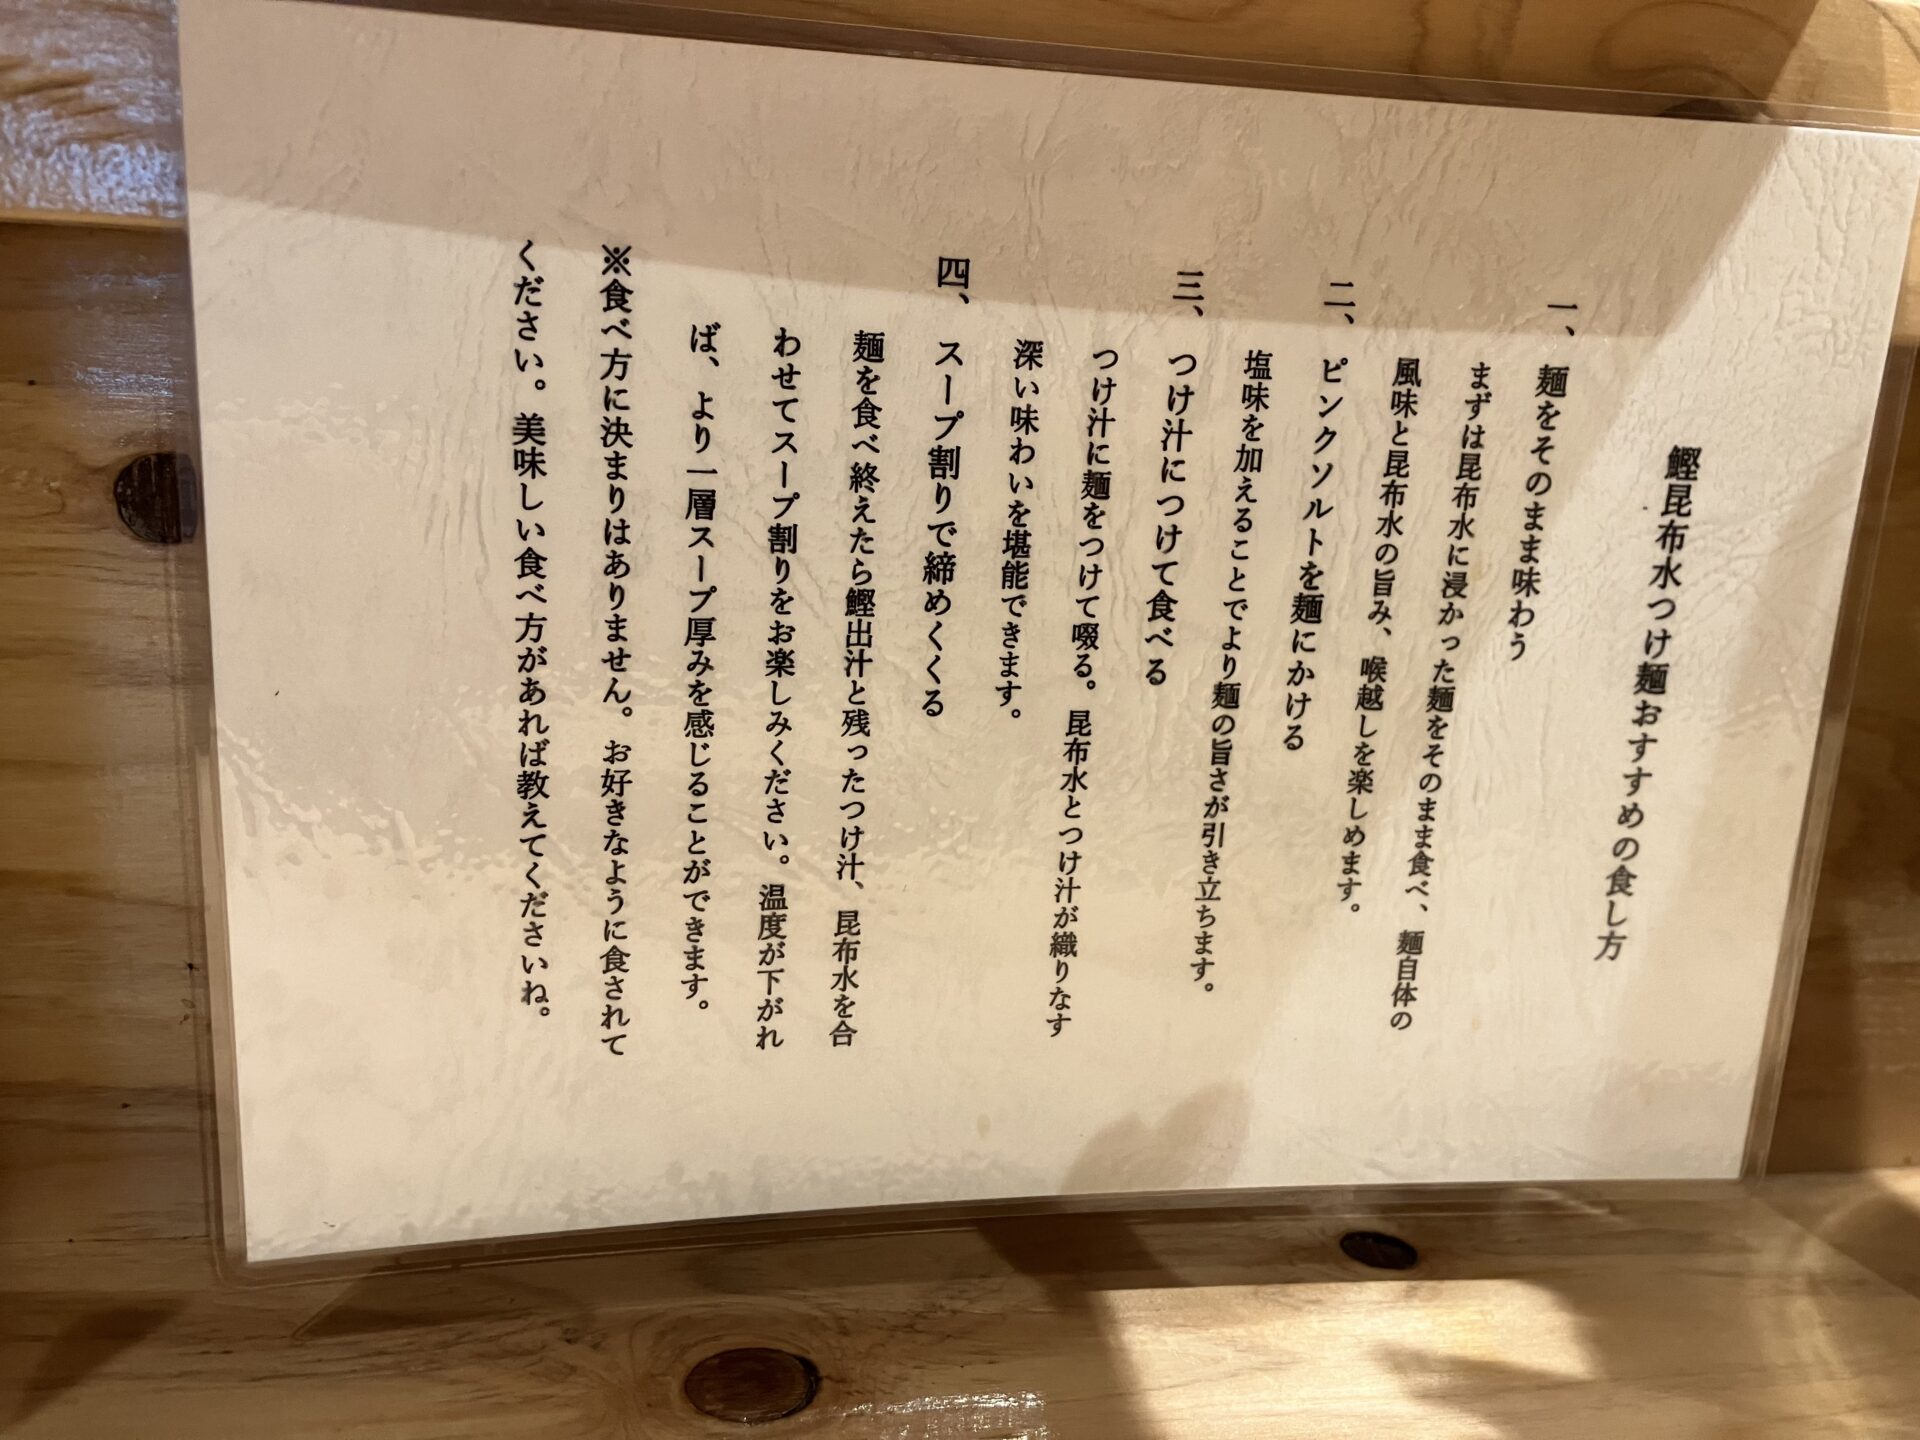 鰹昆布水つけ麺おすすめの食し方
一、麺をそのまま味わう
まずは昆布水に浸かった麺をそのまま食べ、麺自体の
風味と昆布水の旨み、喉越しを楽しめます。
二、ピンクソルトを麺にかける
塩味を加えることでより麺の旨さが引き立ちます。
三、つけ汁につけて食べる
つけ汁に麺をつけて啜る。昆布水とつけ汁が織りなす
深い味わいを堪能できます。
四、スープ割りで締めくくる
麺を食べ終えたら鰹出汁と残ったつけ汁、昆布水を合
わせてスープ割りをお楽しみください。温度が下がれ
ば、より一層スープ厚みを感じることができます。
※食べ方に決まりはありません。お好きなように食されて
ください。美味しい食べ方があれば教えてくださいね。